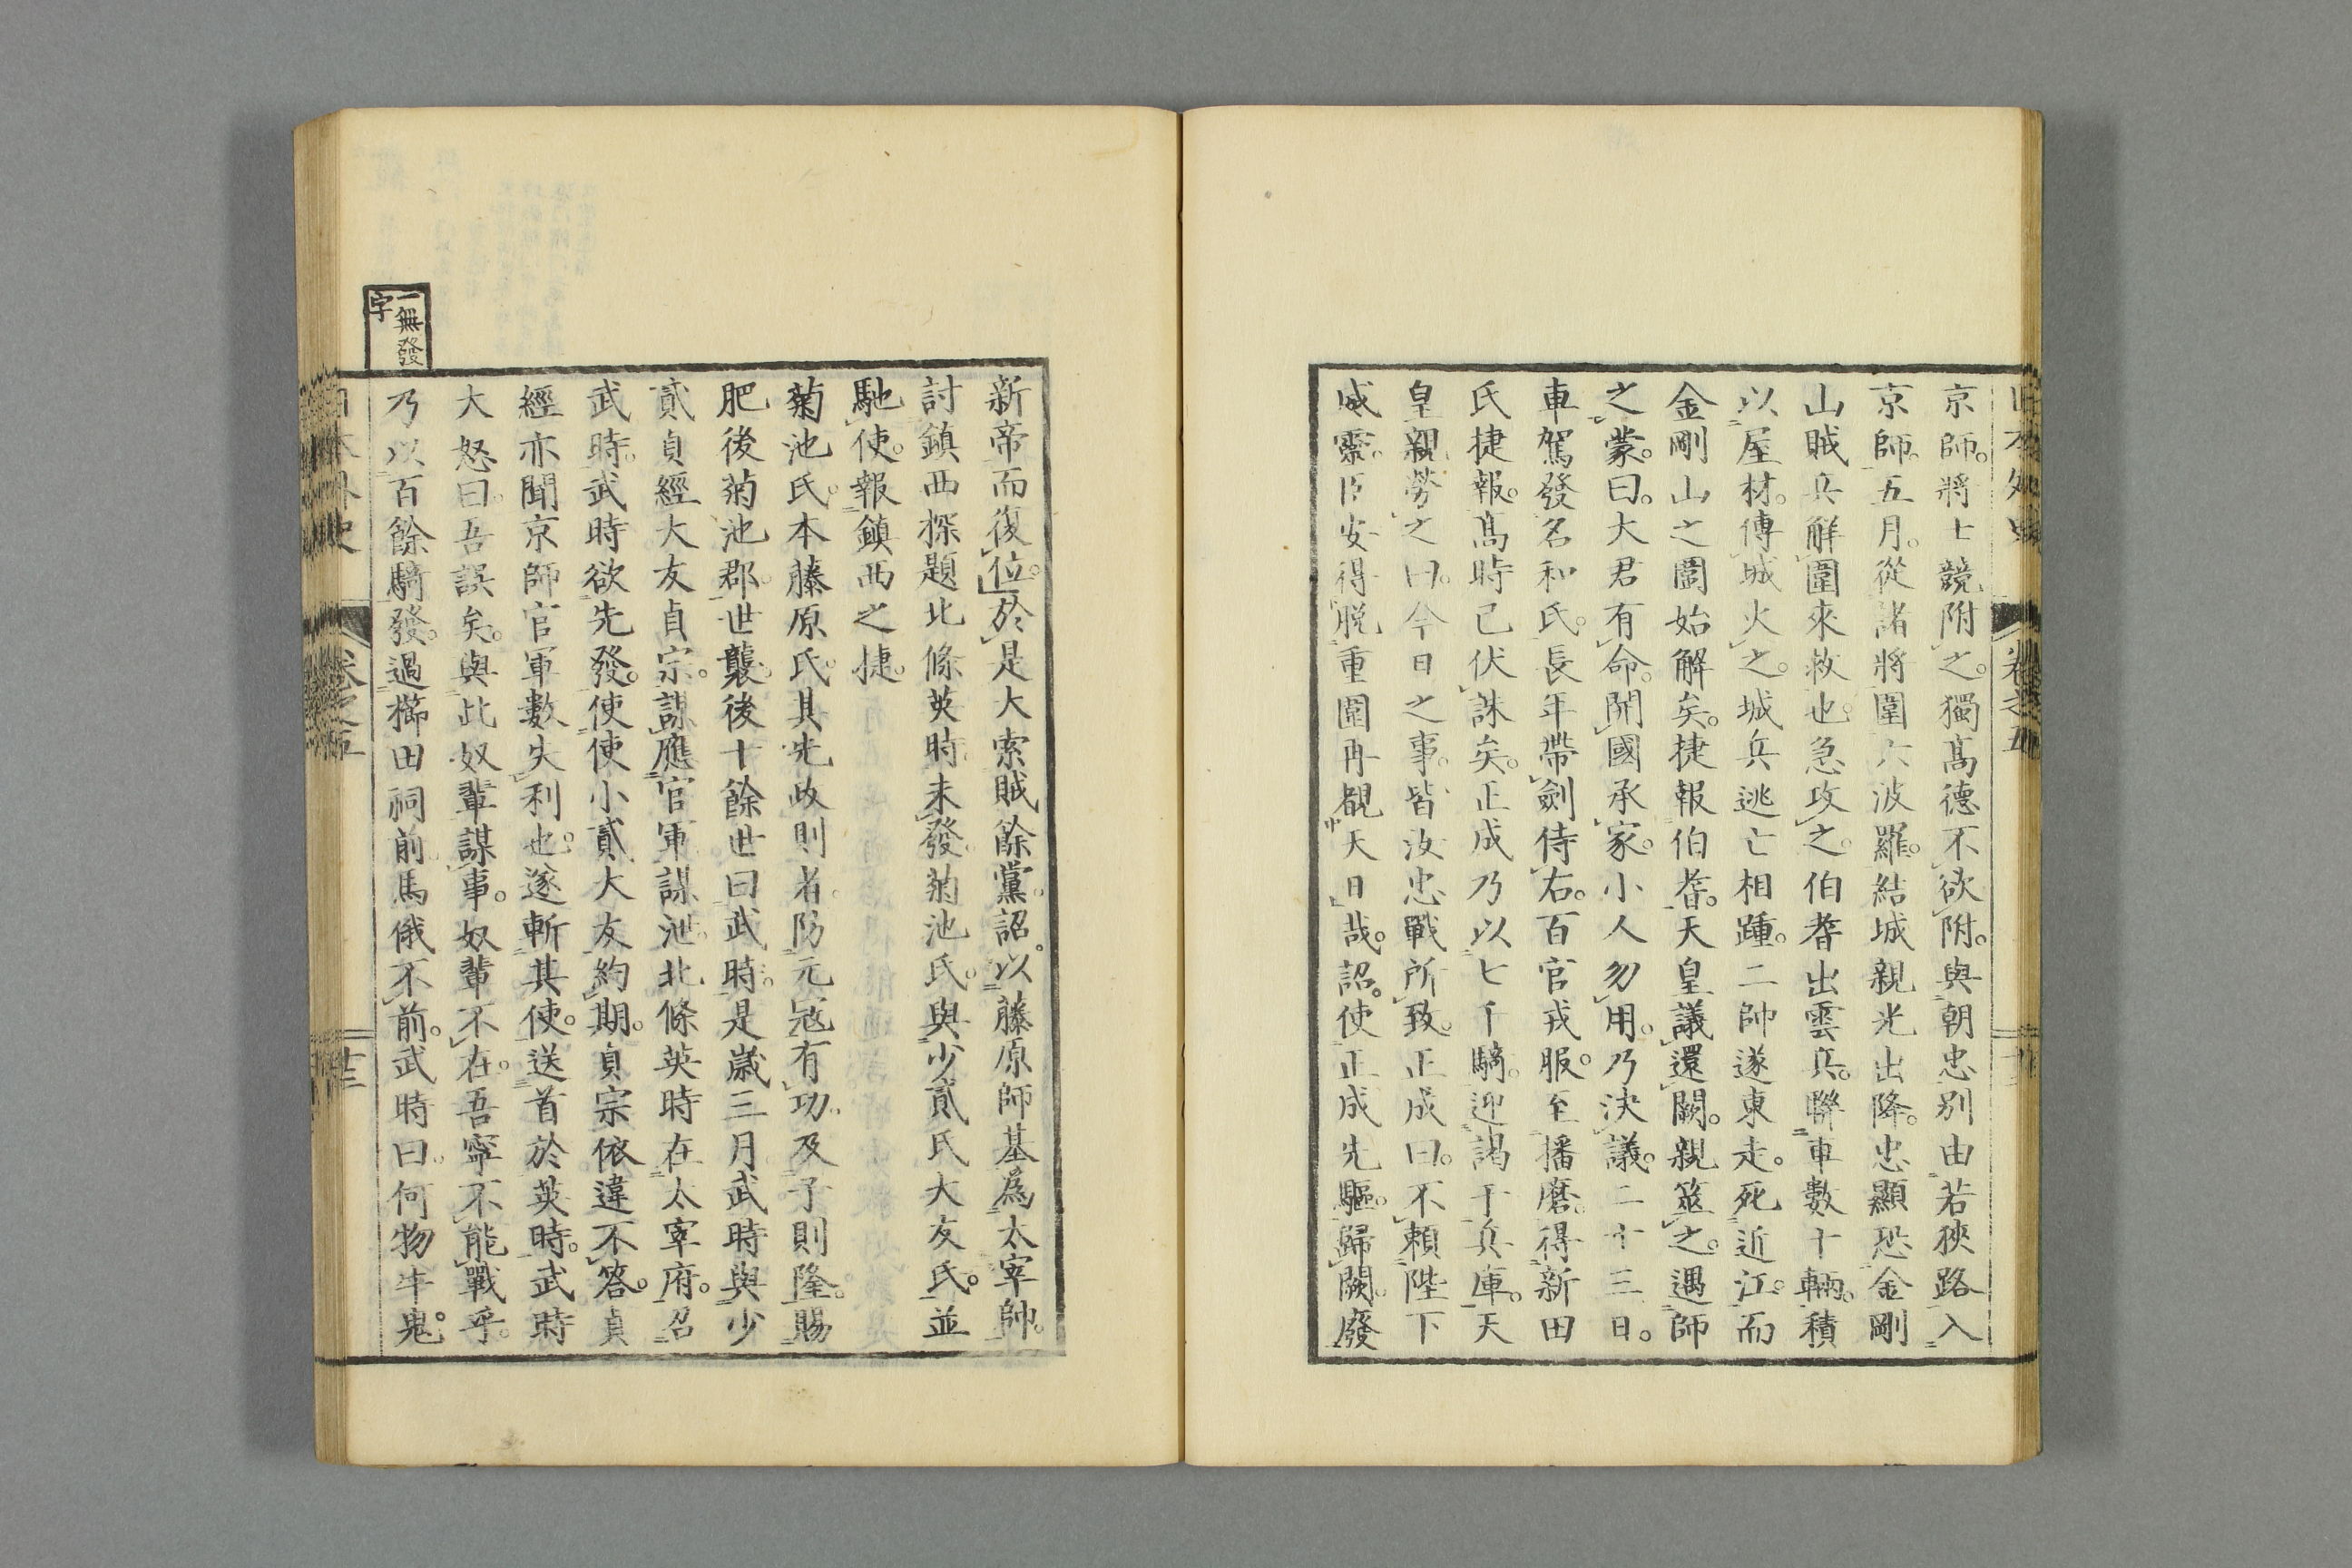 京師。將士競附之。獨高德不欲附。與朝忠別由若狹路入
京師。五月。從諸將圍六波羅。結城親光出降。忠顯恐金剛
山賊兵解圍來救也。急攻之。伯耆出雲兵。聯車數十輛。積
以屋材。傅城火之。城兵逃亡相踵。二帥遂東走。死近江。而
金剛山之圍始解矣。捷報伯耆。天皇議還闕。親筮之。遇師
之蒙。曰。大君有命。開國承家。小人勿用。乃決議。二十三日。
車駕發名和氏。長年帶劍侍右。百官戎服。至播磨。得新田
氏捷報。高時已伏誅矣。正成乃以七千騎。迎謁于兵庫。天
皇親勞之曰。今日之事。皆汝忠戰所致。正成曰。不賴陛下
威靈。臣安得脫重圍再覩天日哉。詔使正成先驅。歸闕。廢
新帝而復位。於是大索賊餘黨。詔。以藤原師基爲太宰帥。
討鎮西探題北條英時。未發。菊池氏。與少貳氏大友氏。並
馳使。報鎮西之捷。
菊池氏。本藤原氏。其先政則者。防元寇有功。及子則隆。賜
肥後菊池郡。世襲。後十餘世曰武時。是歲三月。武時與少
貳貞經大友貞宗。謀應官軍謀泄。北條英時在太宰府。召
武時。武時欲先發。使使小貳大友約期。貞宗依違不答。貞
經亦聞京師官軍數失利也。遂斬其使。送首於英時。武時
大怒曰。吾誤矣。與此奴輩謀事。奴輩不在。吾寧不能戰乎。
乃以百餘騎發。過櫛田祠前。馬俄不前。武時曰。何物牛鬼。
一無發
字
日本外史 卷之五 十三